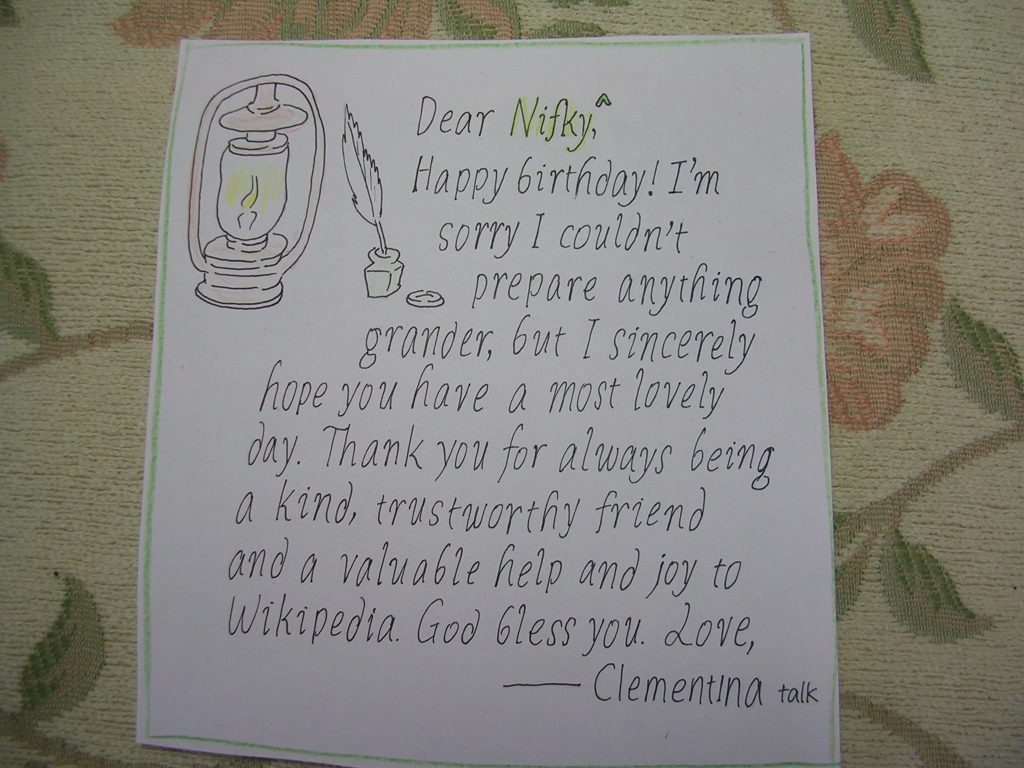 Dear Nifky,^
Happy birthday! I'm
sorry I couldn't
prepare anything
grander, but I sincerely
hope you have a most lovely
day. Thank you for always being
a kind, trustworthy friend
and a valuable help and joy to
Wikipedia. God bless you. Love,
— Clementina talk